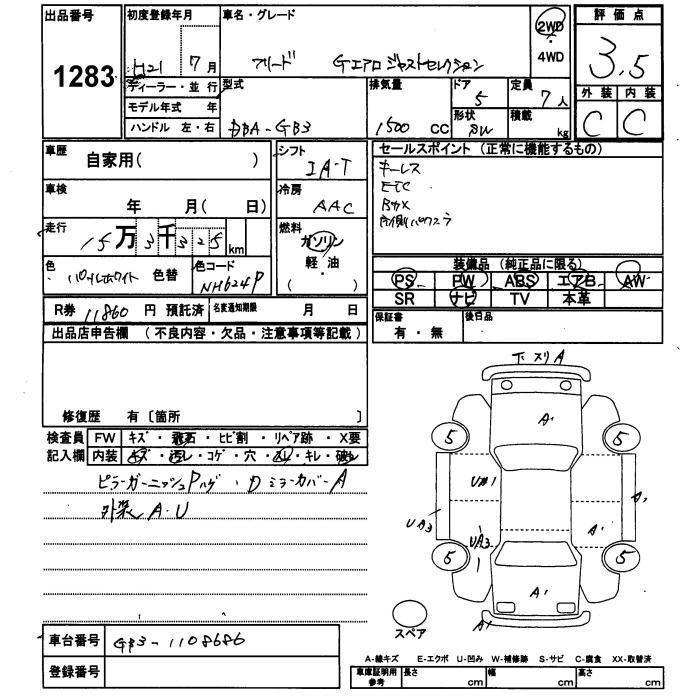 出品番号
1283
初度登録年月
H21 7月
ディーラー・並行
モデル年式 年
ハンドル 左・右
車名・グレード
フリード Gエアロ ジャストセレクション
2WD
・
4WD
型式
DBA-GB3
排気量
1500 CC
ドア
5
形状
定員
7人
積載
kg
評価点
3.5
外装 内装
C C
車歴
自家用( )
車検
年 月( 日)
走行
15万3千325km
色
色替
色コード
NH624P
シフト
IA-T
冷房
AAC
燃料
ガソリン
軽・油
( )
セールスポイント (正常に機能するもの)
キーレス
ETC
片側パワスラ
装備品 (純正品に限る)
PS PW ABS エアB AW
SR ナビ TV 本革
保証書
有・無
後日品
R券 11860 円 預託済
名変通知期限 月 日
出品店申告欄 (不良内容・欠品・注意事項等記載)
修復歴 有〔箇所 〕
検査員
記入欄
FW キズ・飛石・ヒビ割・リペア跡・X要
内装 キズ・汚レ・コゲ・穴・スレ・キレ・破レ
ピラーガーニッシュPハゲ・DミラーカバーA
外装 A・U
下スリA
A1
5 5
U#1
UA3 UA3 A1 A2
5 5
A1
A1
スペア
車台番号 GB3-1108686
登録番号
A-線キズ E-エクボ U-凹み W-補修跡 S-サビ C-腐食 XX-取替済
車庫証明用
参考
長さ cm 幅 cm 高さ cm